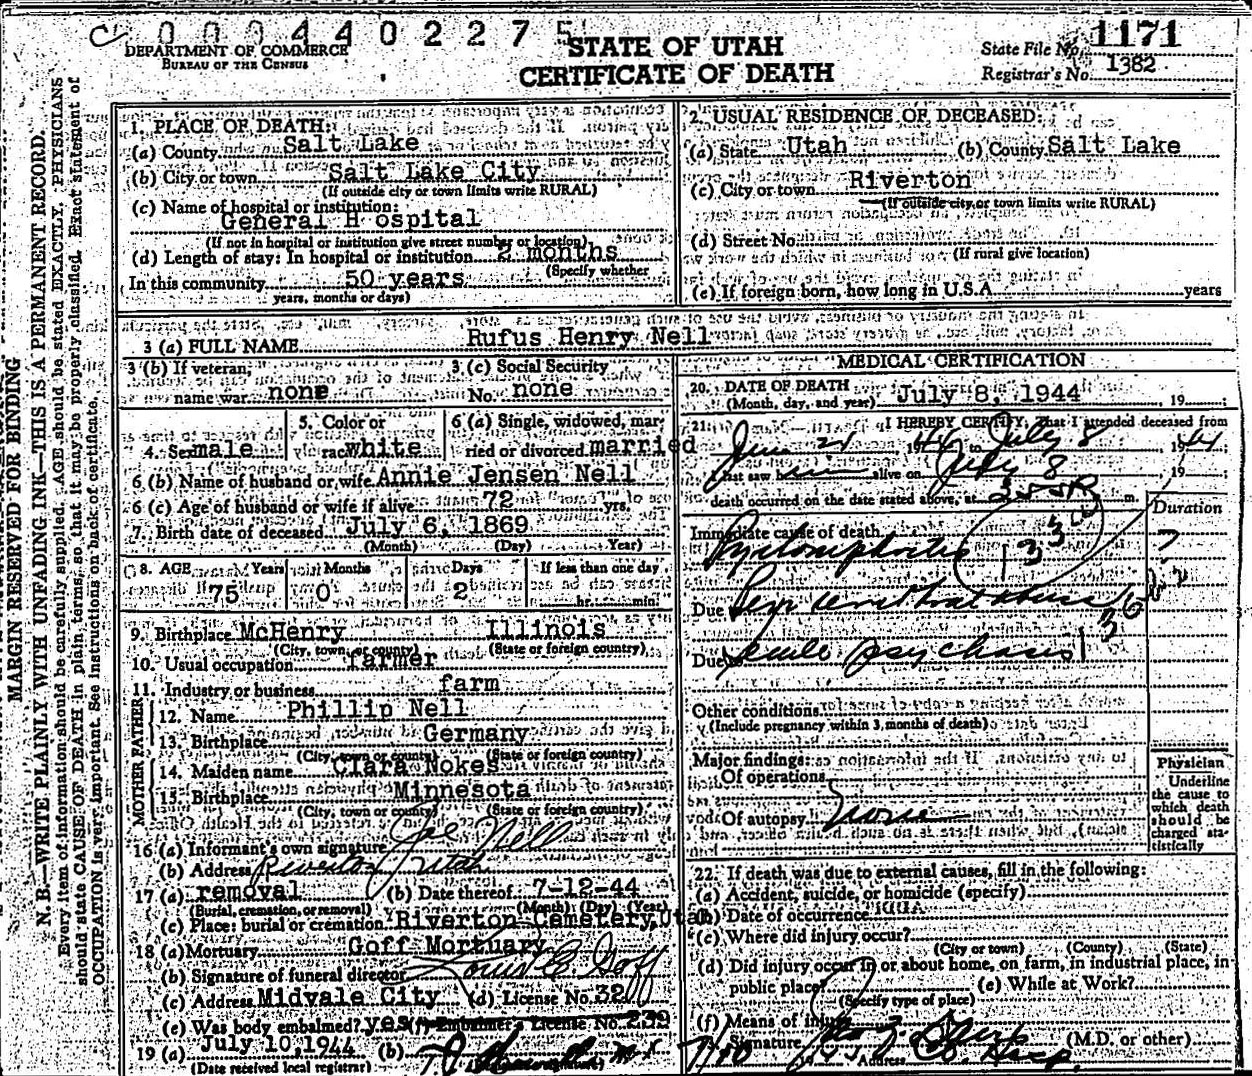 0004402275
DEPARTMENT OF COMMERCE
BUREAU OF THE CENSUS
STATE OF UTAH
CERTIFICATE OF DEATH
State File No. 1171
Registrar's No. 1382
MARGIN RESERVED FOR BINDING
N. B.—WRITE PLAINLY, WITH UNFADING INK—THIS IS A PERMANENT RECORD.
Every item of information should be carefully supplied. AGE should be stated EXACTLY. PHYSICIANS
should state CAUSE OF DEATH in plain terms, so that it may be properly classified. Exact statement of
OCCUPATION is very important. See instructions on back of certificate.
1. PLACE OF DEATH:
(a) County Salt Lake
(b) City or town Salt Lake City
(If outside city or town limits write RURAL)
(c) Name of hospital or institution:
General H ospital
(If not in hospital or institution give street number or location)
(d) Length of stay: In hospital or institution 2 months
(Specify whether
In this community 50 years
years, months or days)
2. USUAL RESIDENCE OF DECEASED:
(a) State Utah (b) County Salt Lake
(c) City or town Riverton
(If outside city or town limits write RURAL)
(d) Street No.
(If rural give location)
(e) If foreign born, how long in U.S.A. years
3 (a) FULL NAME Rufus Henry Nell
3 (b) If veteran, name war none
3 (c) Social Security No. none
4. Sex male
5. Color or race white
6 (a) Single, widowed, married or divorced married
6 (b) Name of husband or wife Annie Jensen Nell
6 (c) Age of husband or wife if alive 72 yrs.
7. Birth date of deceased July 6, 1869
(Month) (Day) Year)
8. AGE Years Months Days If less than one day
75 0 2 hr. min.
9. Birthplace McHenry Illinois
(City, town, or county) (State or foreign country)
10. Usual occupation farmer
11. Industry or business farm
FATHER
12. Name Phillip Nell
13. Birthplace Germany
(City, town or county) (State or foreign country)
MOTHER
14. Maiden name Clara Nokes
15. Birthplace Minnesota
(City, town or county) (State or foreign country)
16 (a) Informant's own signature Joe Nell
(b) Address Riverton Utah
17 (a) removal (b) Date thereof 7-12-44
(Burial, cremation, or removal) (Month) (Day) (Year)
(c) Place: burial or cremation Riverton Cemetery, Utah
18 (a) Mortuary Goff Mortuary
(b) Signature of funeral director Louis E Goff
(c) Address Midvale City (d) License No. 32
(e) Was body embalmed? yes (f) Embalmer's License No. 239
19 (a) July 10, 1944 (b)
(Date received local registrar)
MEDICAL CERTIFICATION
20. DATE OF DEATH
(Month, day, and year) July 8, 1944, 19
21. I HEREBY CERTIFY, that I attended deceased from
June 21 1944 to July 8 1944
I last saw him alive on July 8, 19
death occurred on the date stated above, at m.
Duration
Immediate cause of death
Pyelonephritis ?
Due to
Due to Senile psychosis
Other conditions
(Include pregnancy within 3 months of death)
Major findings:
Of operations
Of autopsy None
Physician
Underline
the cause to
which death
should be
charged sta-
tistically
22. If death was due to external causes, fill in the following:
(a) Accident, suicide, or homicide (specify)
(b) Date of occurrence
(c) Where did injury occur?
(City or town) (County) (State)
(d) Did injury occur in or about home, on farm, in industrial place, in
public place? (e) While at Work?
(Specify type of place)
(f) Means of injury
Signature (M.D. or other)
7/10 Address Co. Hosp.